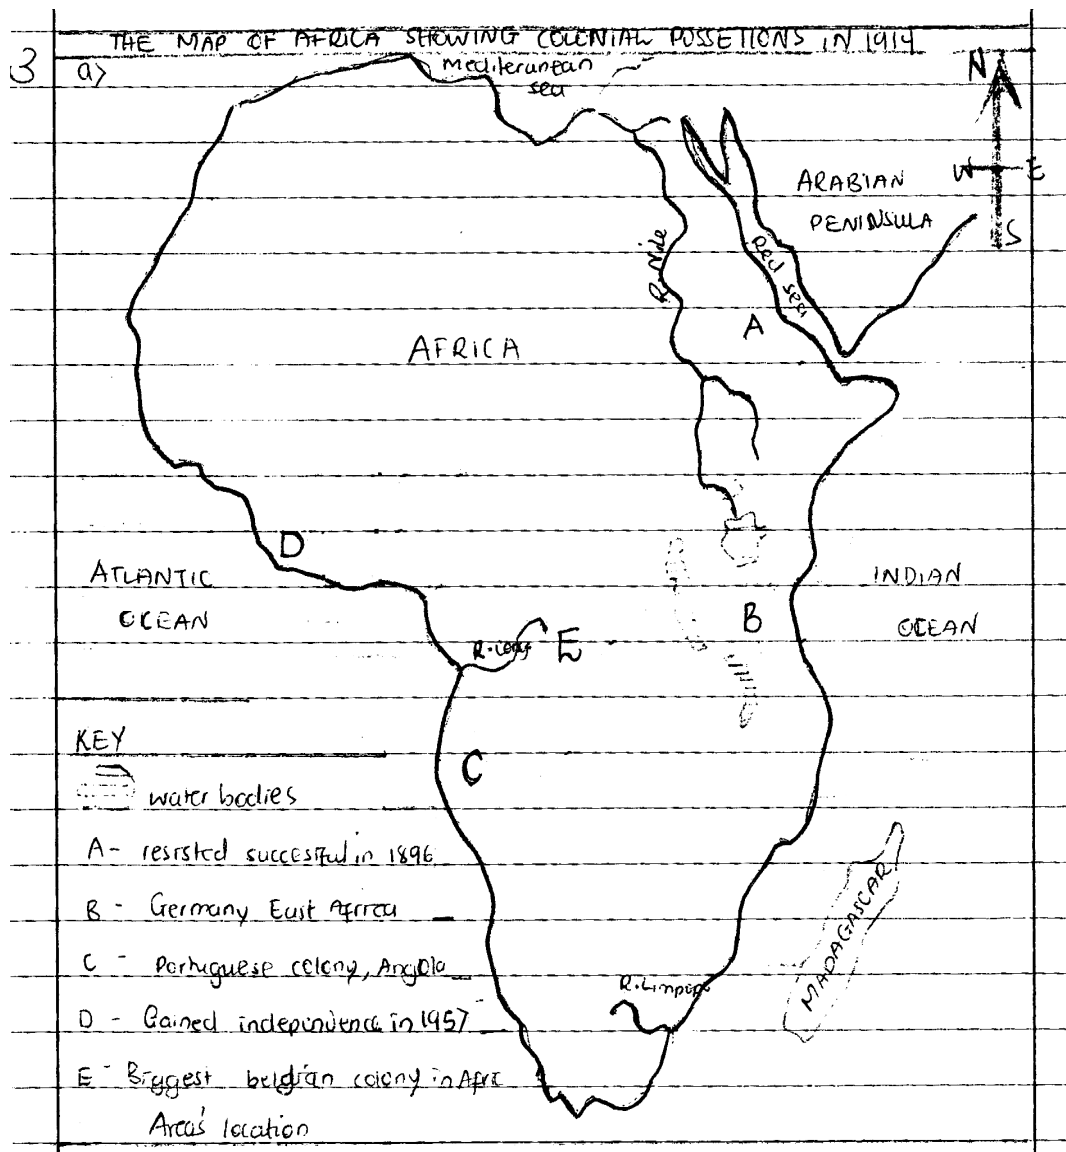 THE MAP OF AFRICA SHOWING COLONIAL POSSETIONS IN 1914
3 a)
Mediteranean
sea
N
W E
S
ARABIAN
PENINSULA
Red sea
R. Nile
A
AFRICA
D
ATLANTIC
OCEAN
INDIAN
OCEAN
B
E
C
KEY
water bodies
A - resisted succesful in 1896
B - Germany East Africa
C - Portuguese colony, Angola
D - Gained independence in 1957
E - Biggest belgian colony in Afric
Areas location
R. Limpopo
MADAGASCAR